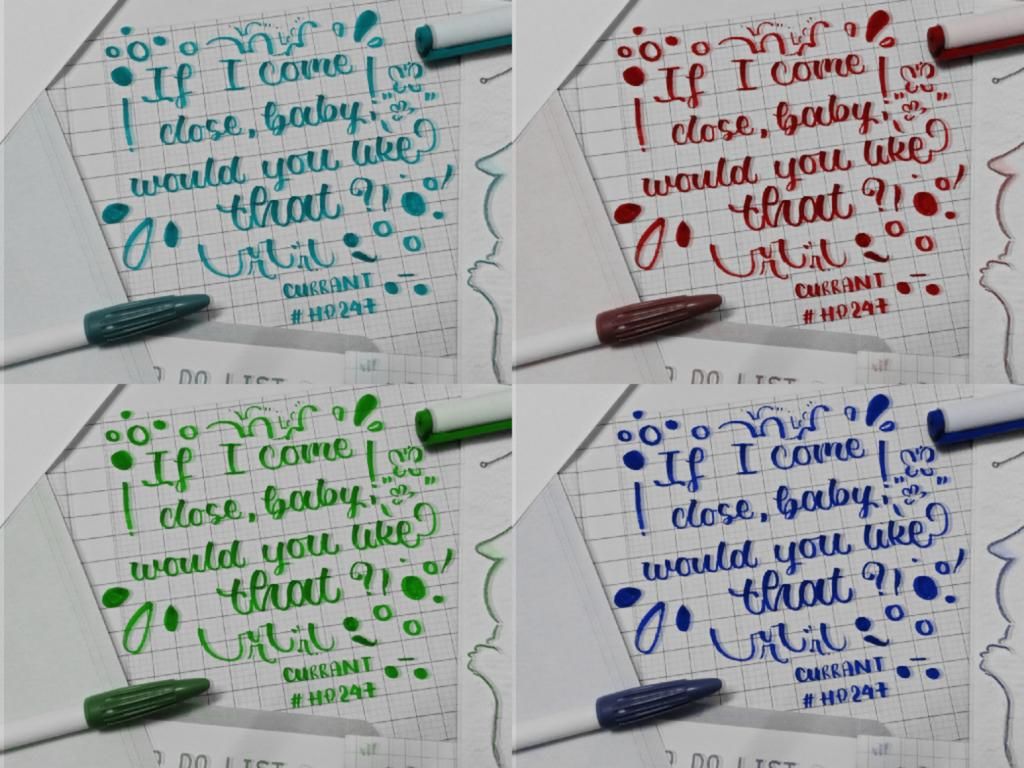 If I come
close, baby,
would you like
that ?!
CURRANT
#HD247
DO LIST
If I come
close, baby,
would you like
that ?!
CURRANT
#HD247
DO LIST
If I come
close, baby,
would you like
that ?!
CURRANT
#HD247
DO LIST
If I come
close, baby,
would you like
that ?!
CURRANT
#HD247
DO LIST